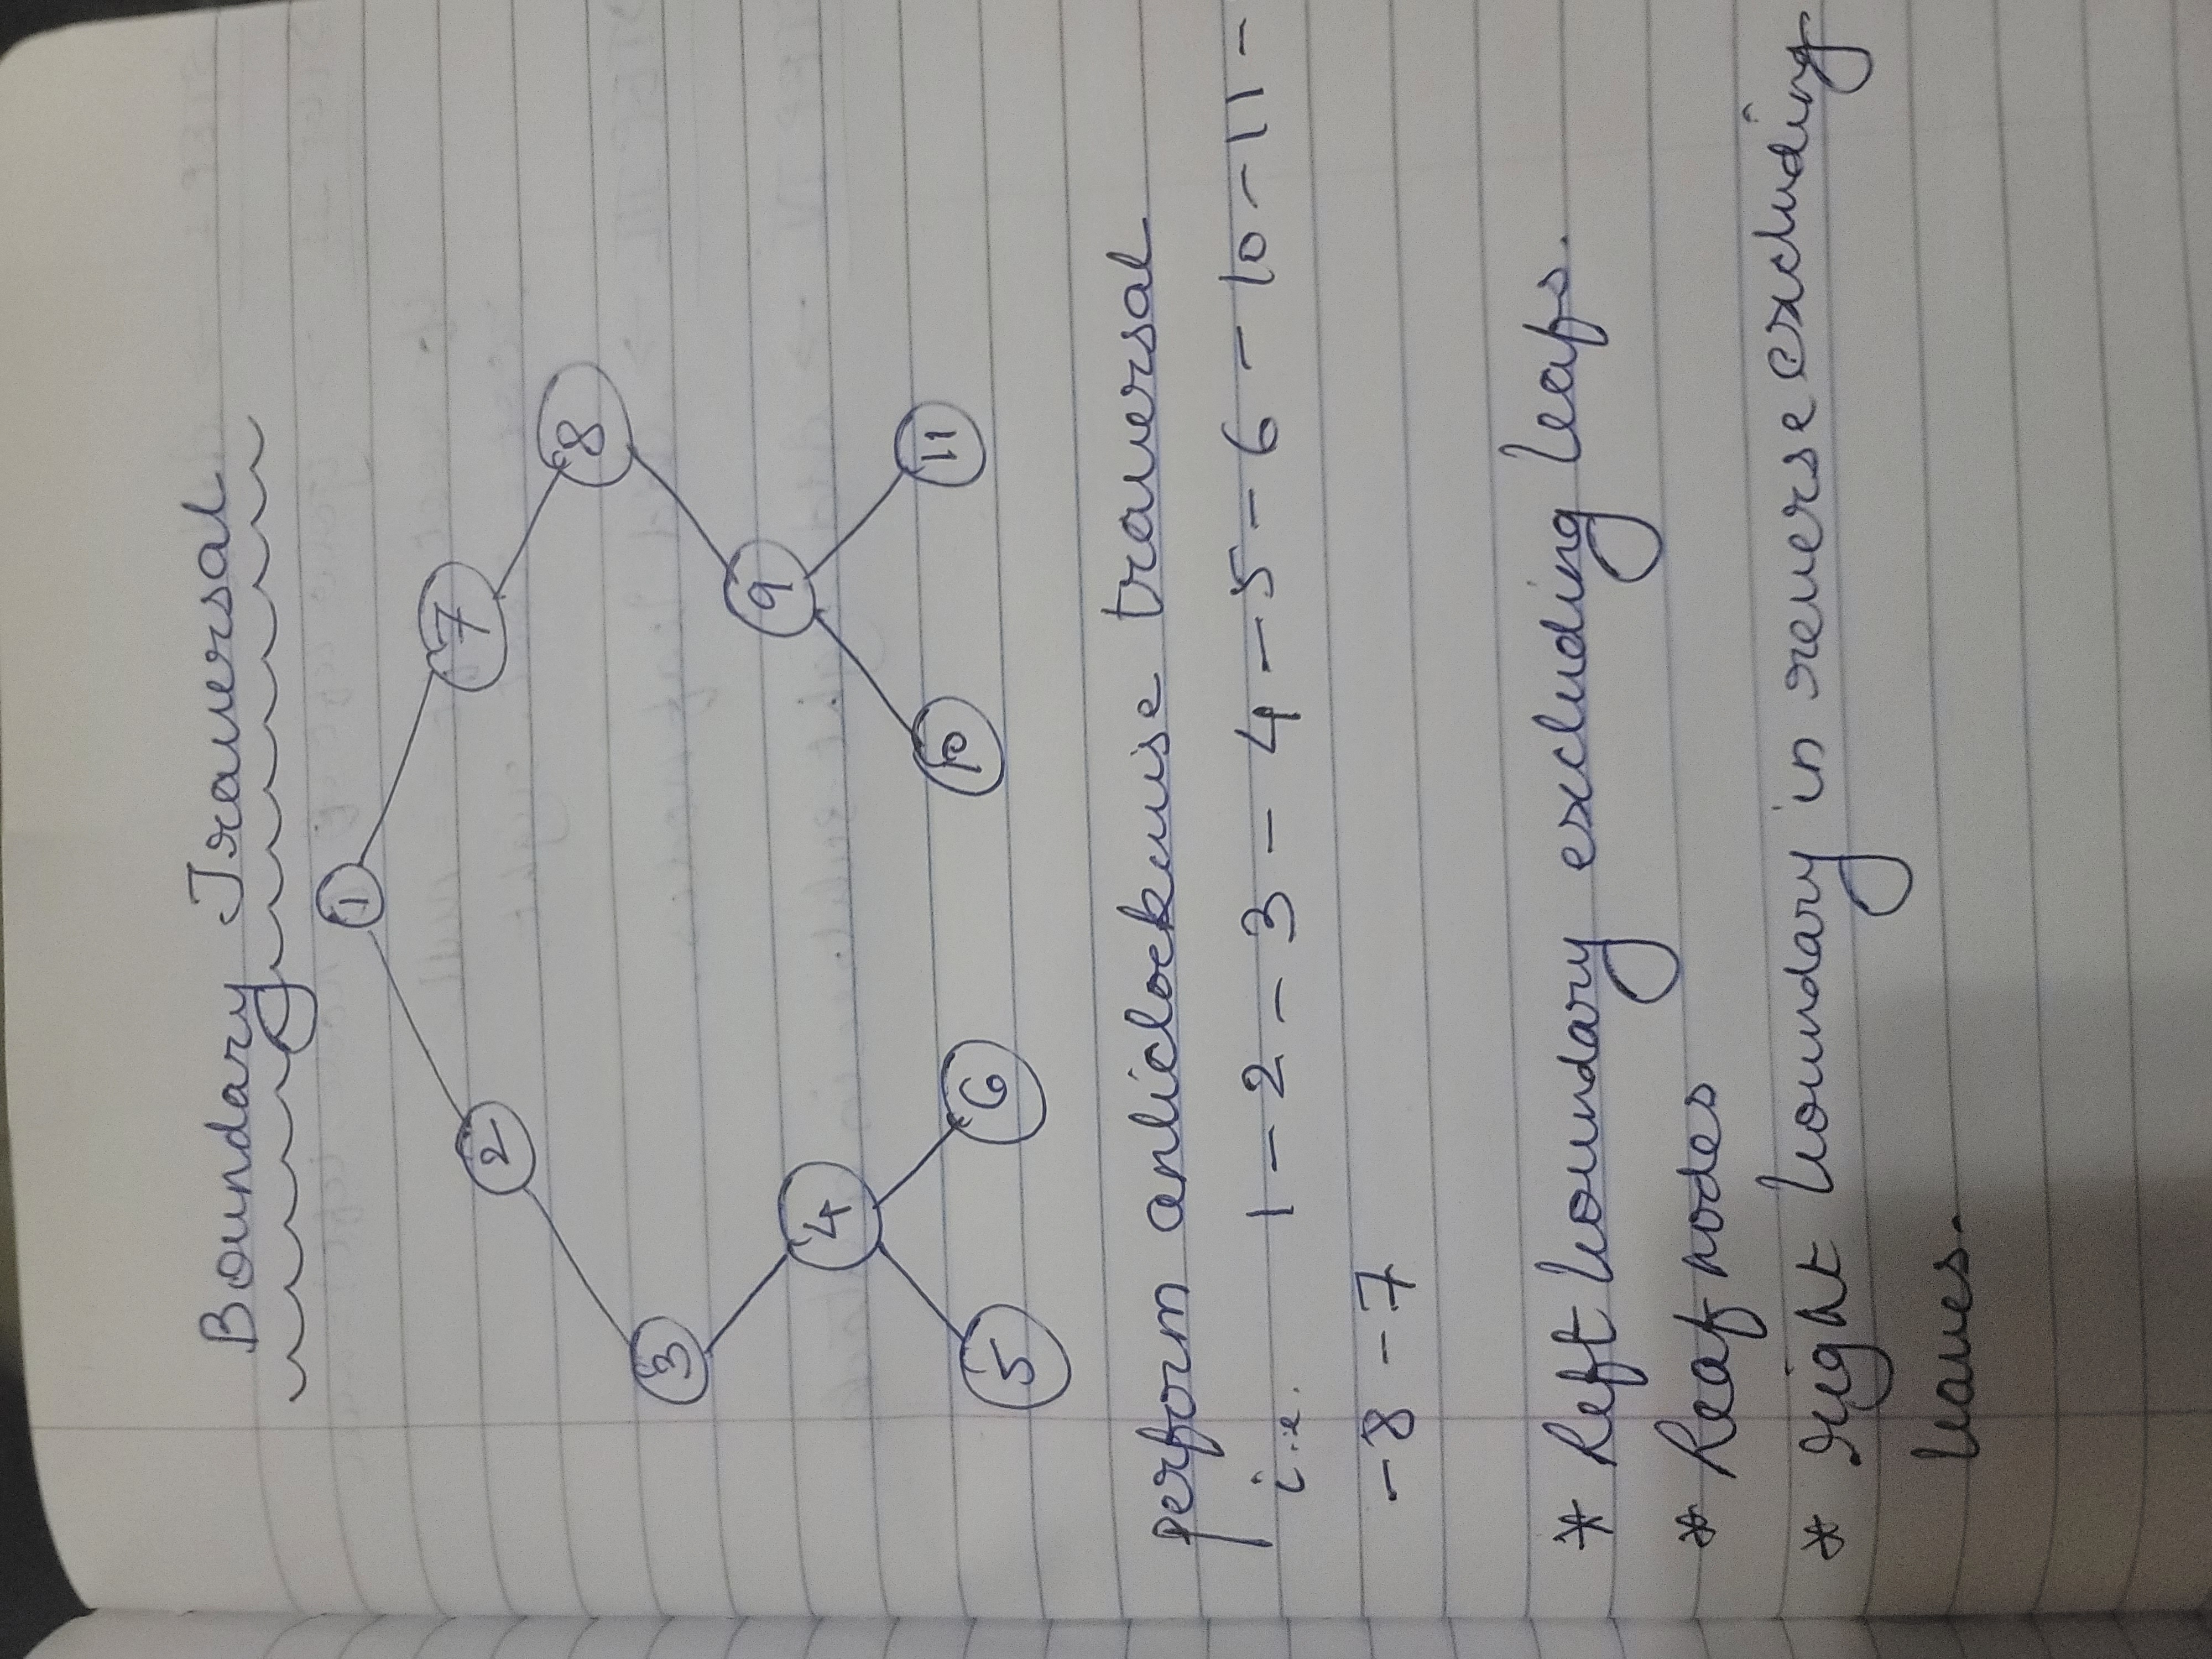 Boundary Traversal
1
2 7
3 8
4 9
5 6 10 11
perform anticlockwise traversal
i.e. 1 - 2 - 3 - 4 - 5 - 6 - 10 - 11 -
- 8 - 7
* Left boundary excluding leafs.
* Leaf nodes
* right boundary in reverse excluding
leaves.